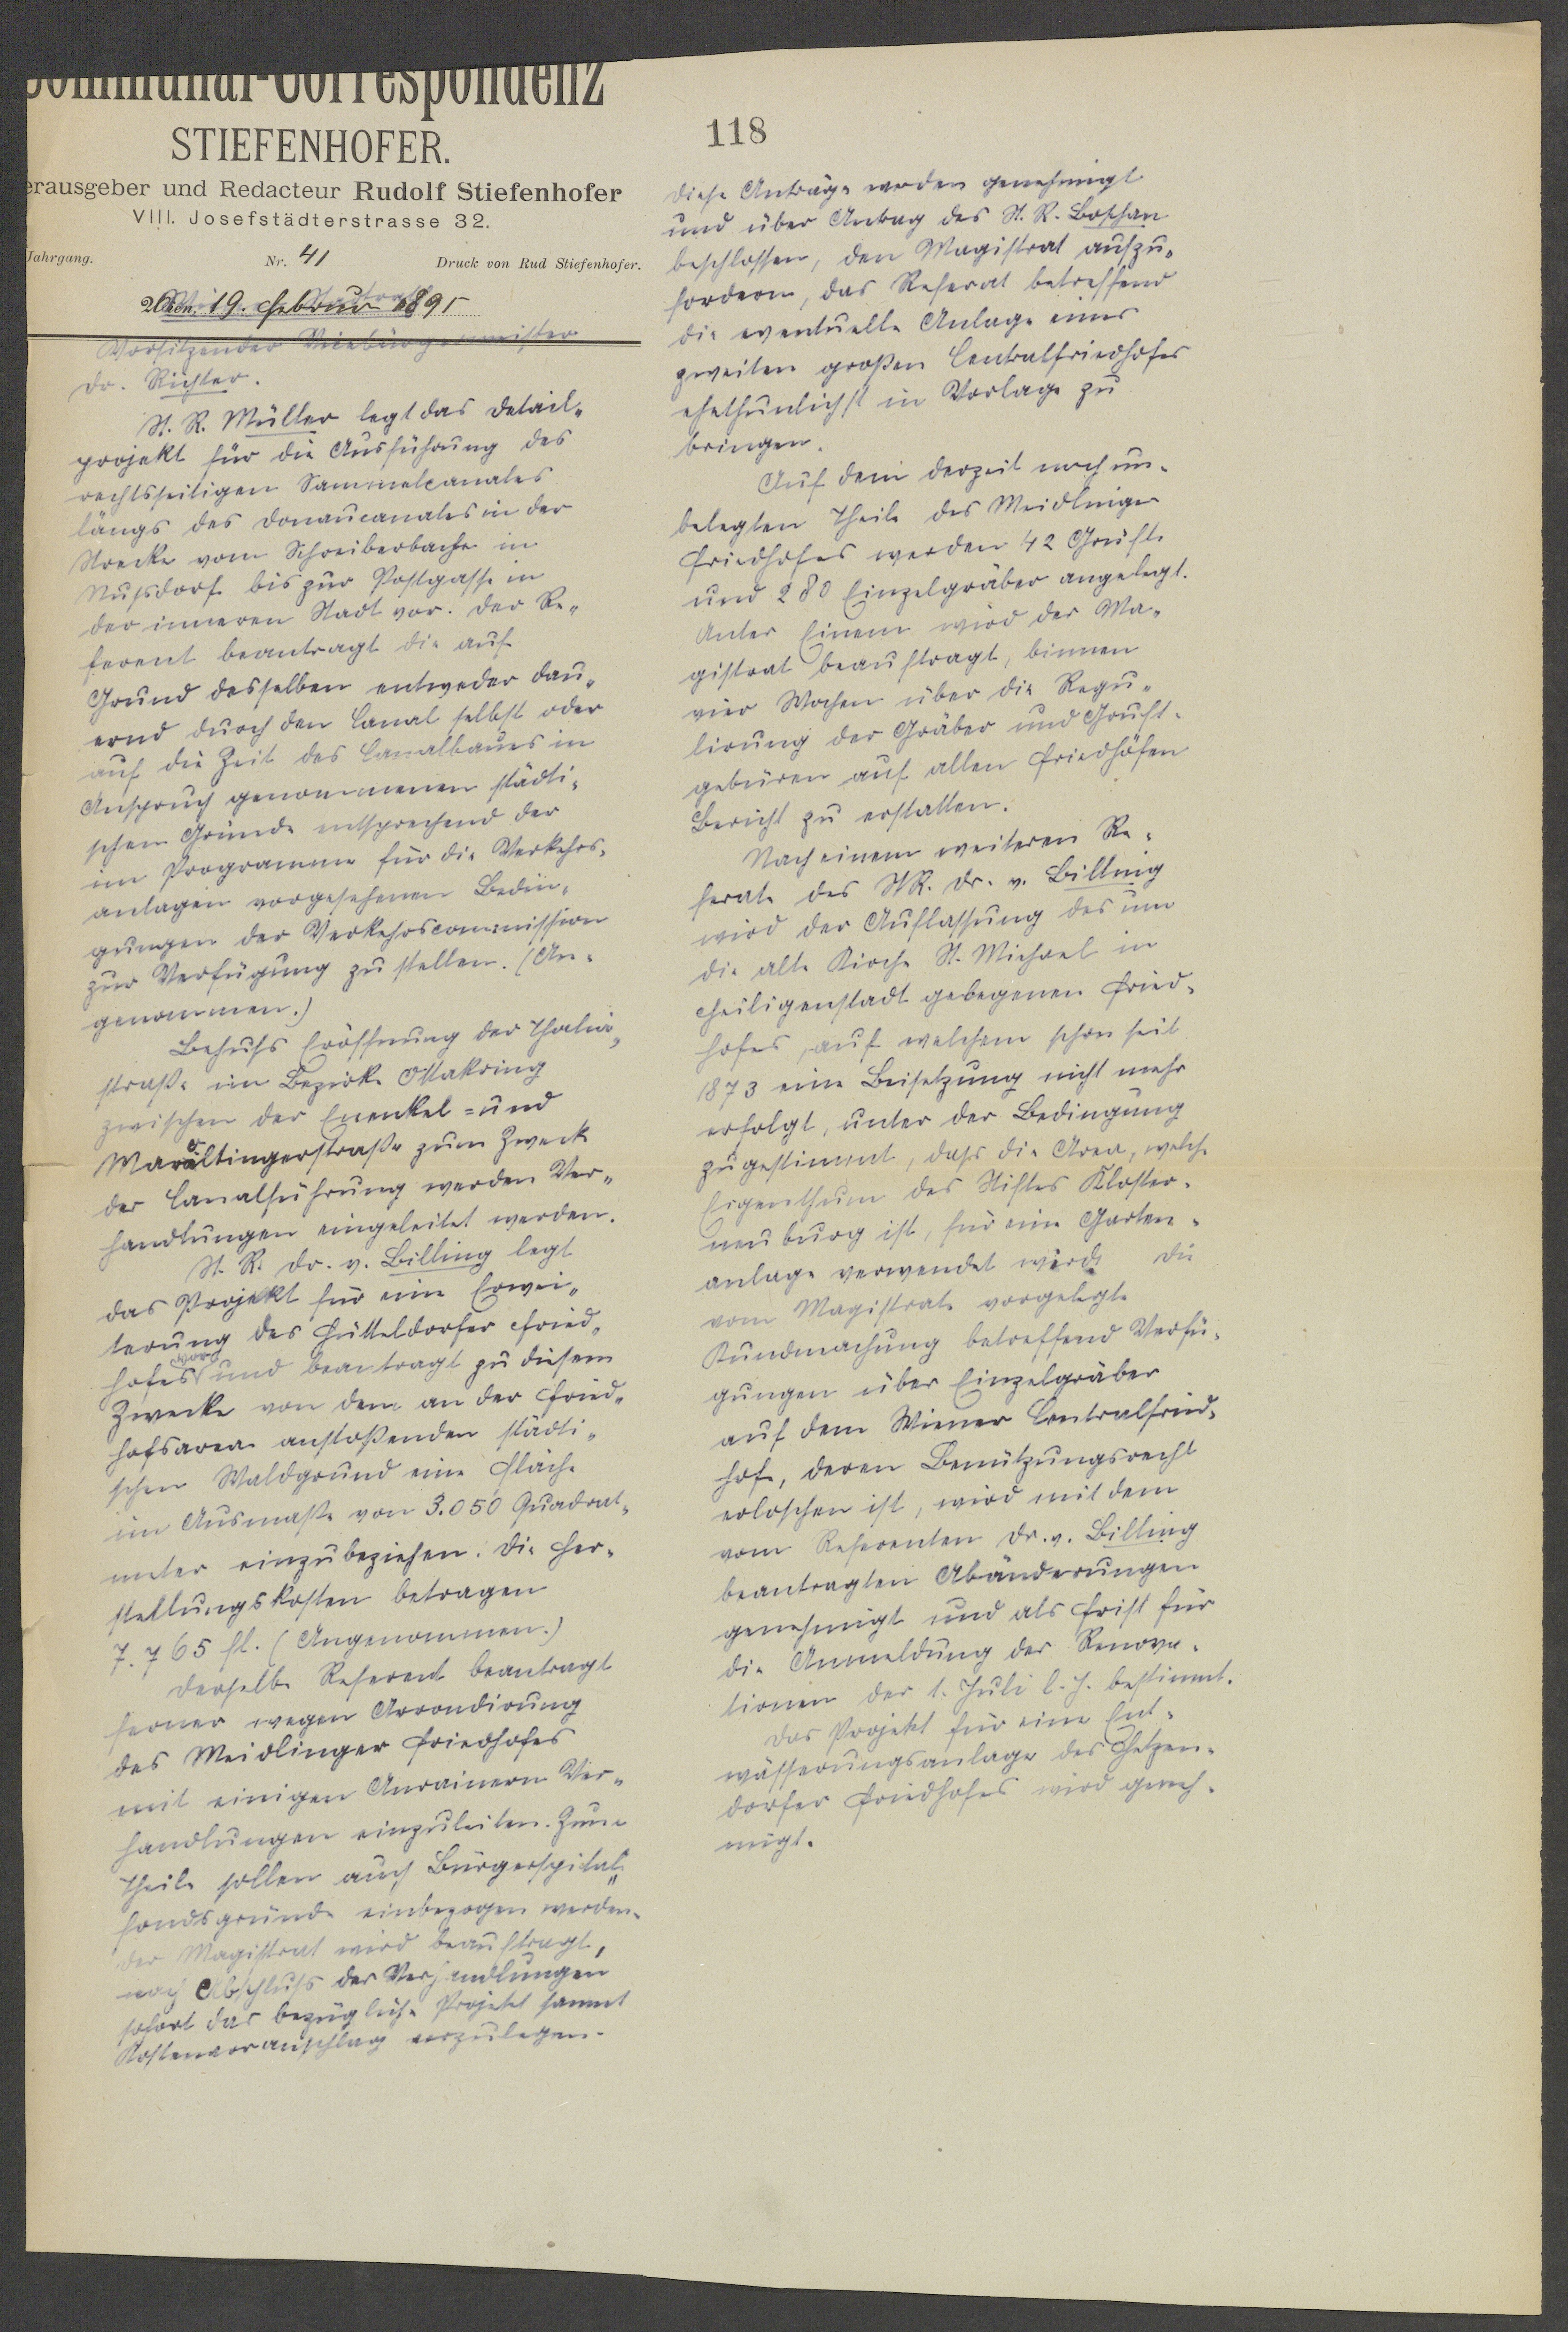 Communal-Correspondenz
STIEFENHOFER.
erausgeber und Redacteur Rudolf Stiefenhofer
VIII. Josefstädterstrasse 32.
Jahrgang. Nr. 41 Druck von Rud Stiefenhofer.
19. Februar 1895
Vorsitzender Vicebürgermeister
Dr. Richter.
St. R. Müller legt das Detail-
projekt für die Ausführung des
rechtsseitigen Sammelcanales
längs des Donaucanales in der
Strecke vom Schreiberbache in
Nußdorf bis zur Postgasse in
der inneren Stadt vor. Der Re-
ferent beantragt die auf
Grund desselben entweder dau-
ernd durch den Canal selbst oder
auf die Zeit des Canalbaues in
Anspruch genommenen städti-
schen Gründe entsprechend der
im Programme für die Verkehrs-
anlagen vorgesehenen Bedin-
gungen der Verkehrscommission
zur Verfügung zu stellen. (An-
genommen.)
Behufs Eröffnung der Thalia-
straße im Bezirke Ottakring
zwischen der Enenkel- und
Maroltingerstraße zum Zweck
der Canalführung werden Ver-
handlungen eingeleitet werden.
St. R. Dr. v. Billing legt
das Projekt für eine Erwei-
terung des Hütteldorfer Fried-
hofes vor und beantragt zu diesem
Zwecke von dem an der Fried-
hofsarea anstoßenden städti-
schen Waldgrund eine Fläche
im Ausmaße von 3.050 Quadrat-
meter einzubeziehen. Die Her-
stellungskosten betragen
7.765 fl. (Angenommen.)
Derselbe Referent beantragt
ferner wegen Arrondirung
des Meidlinger Friedhofes
mit einigen Anrainern Ver-
handlungen einzuleiten. Zum
Theile sollen auch Bürgerspital-
fondsgründe einbezogen werden.
Der Magistrat wird beauftragt,
nach Abschluß der Verhandlungen
sofort das bezügliche Projekt sammt
Kostenvoranschlag vorzulegen.
118
Diese Anträge werden genehmigt
und über Antrag des St. R. Boschan
beschlossen, den Magistrat aufzu-
fordern, das Referat betreffend
die eventuelle Anlage eines
zweiten großen Centralfriedhofes
ehethunlichst in Vorlage zu
bringen.
Auf dem derzeit noch un-
belegten Theile des Meidlinger
Friedhofes werden 42 Grüfte
und 280 Einzelgräber angelegt.
Unter Einem wird der Ma-
gistrat beauftragt, binnen
vier Wochen über die Regu-
lirung der Gräber und Gruft-
gebüren auf allen Friedhöfen
Bericht zu erstatten.
Nach einem weiteren Re-
ferate des StR. Dr. v. Billing
wird der Auflassung des um
die alte Kirche St. Michael in
Heiligenstadt gelegenen Fried-
hofes, auf welchem schon seit
1873 eine Beisetzung nicht mehr
erfolgt, unter der Bedingung
zugestimmt, daß die Area, welche
Eigenthum des Stiftes Kloster-
neuburg ist, für eine Garten-
anlage verwendet wird. Die
vom Magistrate vorgelegte
Kundmachung betreffend Verfü-
gungen über Einzelgräber
auf dem Wiener Centralfried-
hof, deren Benützungsrecht
erloschen ist, wird mit dem
vom Referenten Dr. v. Billing
beantragten Abänderungen
genehmigt und als Frist für
die Anmeldung der Renova-
tionen der 1. Juli l. J. bestimmt.
Das Projekt für eine Ent-
wässerungsanlage des Hetzen-
dorfer Friedhofes wird geneh-
migt.